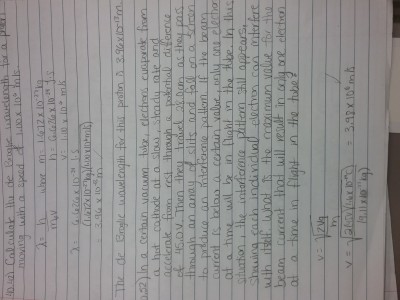 Calculate the de Broglie wavelength for a proton
moving with a speed of 1.00 x 10⁶ m/s
λ = h/mv where m = 1.672 x 10⁻²⁷ kg
h = 6.626 x 10⁻³⁴ J·s
λ = 6.626 x 10⁻³⁴ J·s
The de Broglie wavelength for this proton is 3.96x10⁻¹³ m.
52) In a certain vacuum tube, electrons evaporate from
a hot cathode at a slow, steady rate and
accelerate from rest through a potential difference
of 45.0 V. Then they travel 28.0 cm as they pass
through an array of slits and fall on a screen
to produce an interference pattern. If the beam
current is below a certain value, only one electron
at a time will be in flight in the tube. In this
situation, the interference pattern still appears,
showing each individual electron can interfere
with itself. What is the maximum value for the
beam current that will result in only one electron
at a time in flight in the tube?
v = √2Vq/m
m/s